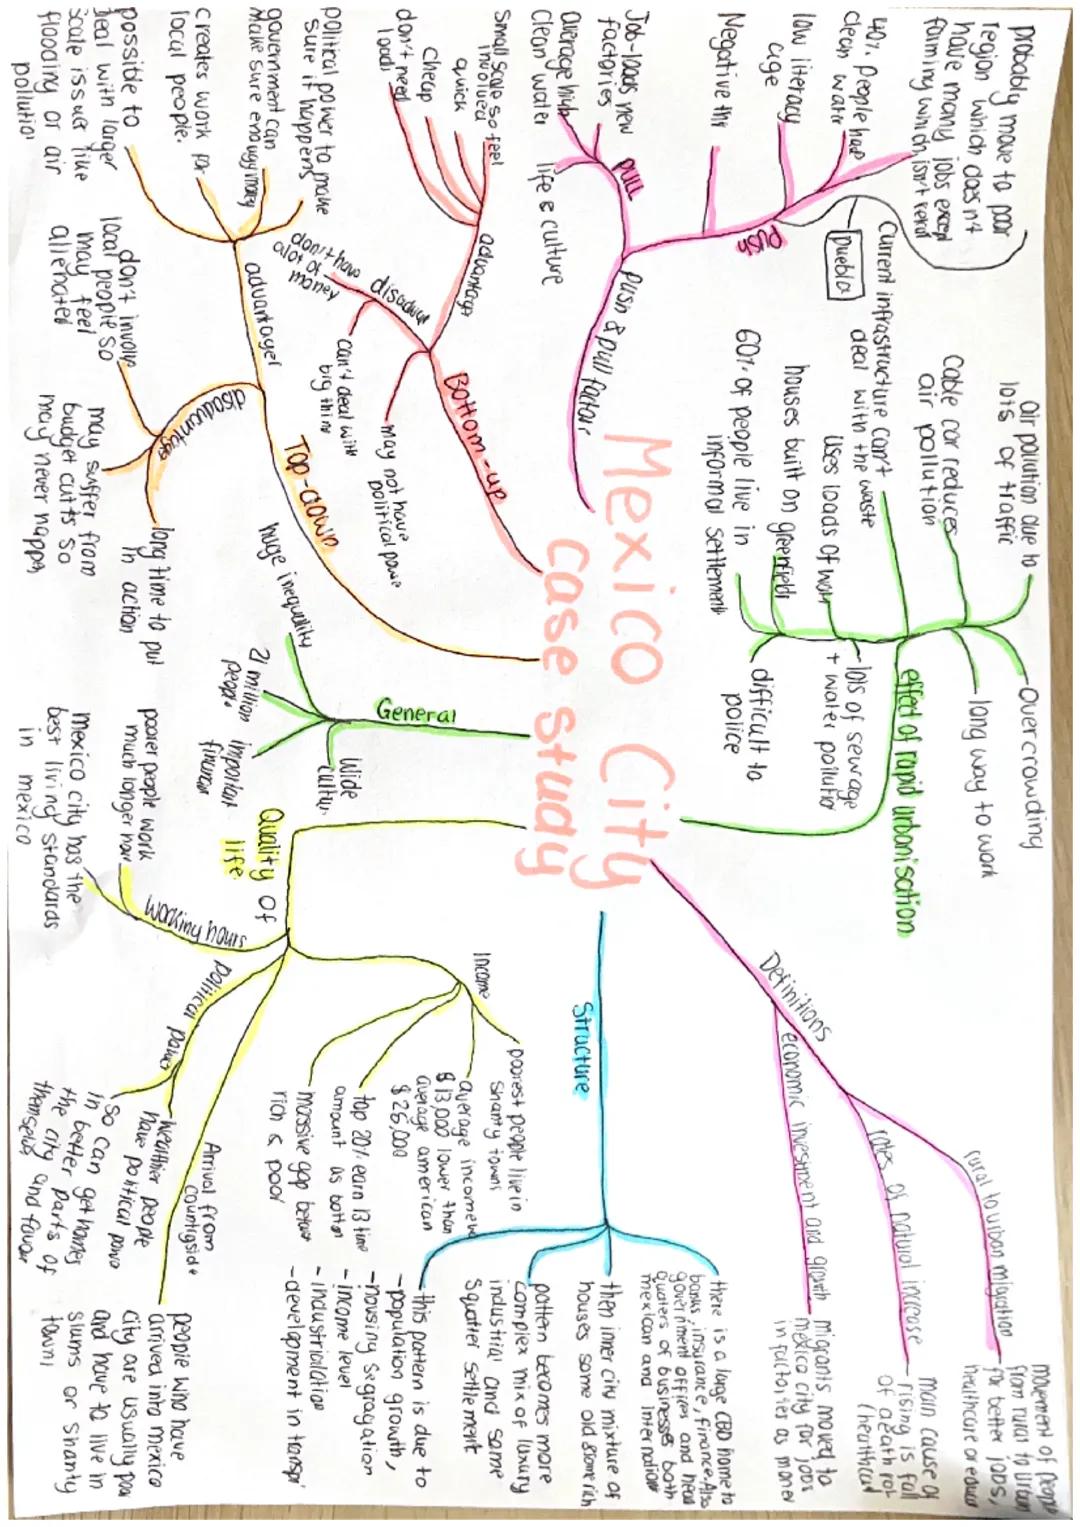 Mexico City
case study
push & pull factor,
push
probably move to poor
region which doesn't
have many jobs except
farming which isn't
Puebla
40% people had
clean water
low literacy
Negative
pull
Job-loads new
factories
average high
clean water
life & culture
Bottom-up
advantage
small scale so feel
involved
quick
cheap
don't need
disadvan
don't have
alot of
money
can't deal with
big thin
may not have
political powe
Top-down
advantager
political power to make
sure it happens
government can
make sure enough money
creates work for
local people.
possible to
deal with larger
scale issues like
flooding or air
pollution
disadvantage
don't involve
local people so
may feel
alienated
may suffer from
budget cuts so
may never happen
long time to put
in action
General
huge inequality
21 million
people
important
Wide
cultur
effect of rapid urbanisation
air pollution due to
lots of traffic
Cable car reduces
air pollution
Current infrastructure can't
deal with the waste
Uses loads of wat
houses built on greenfield
60% of people live in
informal settlement
Overcrowding
long way to work
lots of sewage
+ water pollution
difficult to
police
Quality of
life
working hours
poorer people work
much longer hour
mexico city has the
best living standards
in mexico
political power
wealthier people
have political power
so can get homes
in the better
the city parts of
themselves and favour
Arrival from
countryside
people who have
arrived into mexico
city are usually poor
and have to live in
slums or shanty
towns
Income
poorest people live in
shanty towns
average income
$13,000 lower than
average american
$26,000
top 20% earn 13 time
amount as bottom
massive gap between
rich & poor
Structure
there is a large CBD home to
banks, insurance, finance. Also
government offices and head
quaters of businesses both
mexican and internation
then inner city mixture of
houses some old some rich
pattern becomes more
complex mix of luxury
industrial and some
squatter settlement
this pattern is due to
- population growth,
- housing segragation
- income level
- industrialation
- development in transp
Definitions
economic investment and growth
migrants moved to
mexico city for jobs
in factories as money
rates of natural increase
main cause of
rising is fall
of death rat
(healthcar
rural to urban migration
movement of people
from rural to urban
for better jobs,
healthcare or educa